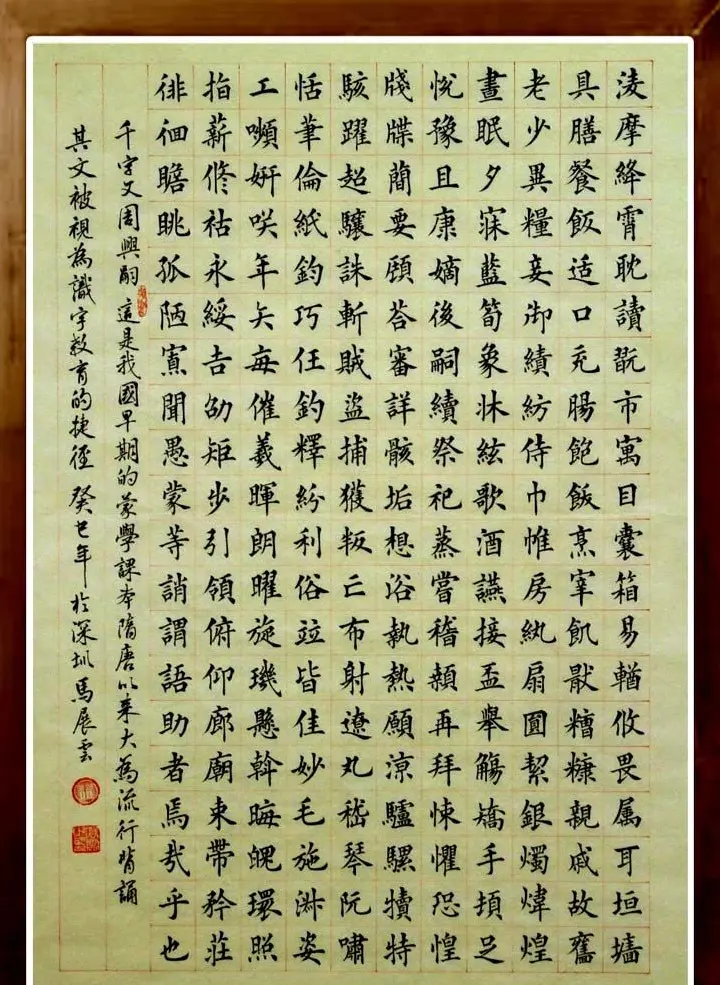 淩摩絳霄耽讀翫市寓目囊箱易輶攸畏属耳垣墻
具膳餐飯适口充腸飽飯烹宰飢猒糟糠親戚故舊
老少異糧妾御績紡侍巾帷房紈扇圓絜銀燭煒煌
晝眠夕寐藍筍象牀絃歌酒讌接盃舉觴矯手頓足
悅豫且康嫡後嗣續祭祀蒸嘗稽顙再拜悚懼恐惶
牋牒簡要顧荅審詳骸垢想浴執熱願凉驢騾犢特
駭躍超驤誅斬賊盜捕獲叛亡布射遼丸嵇琴阮嘯
恬筆倫紙鈞巧任釣釋紛利俗竝皆佳妙毛施淑姿
工嚬妍咲年矢每催羲暉朗曜旋璣懸斡晦魄環照
指薪修祜永綏吉劭矩步引領俯仰廊廟束帶矜莊
徘徊瞻眺孤陋寡聞愚蒙等誚謂語助者焉哉乎也
千字文周興嗣 這是我國早期的蒙學課本隋唐以来大為流行背誦
其文被視為識字教育的捷徑 癸巳年 於深圳馬展雲